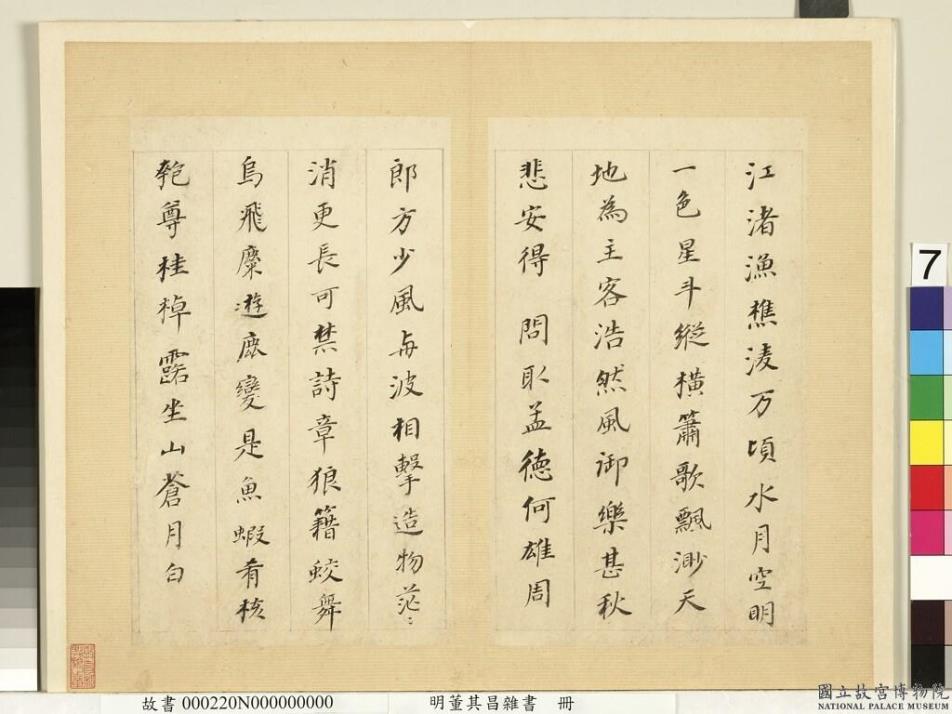 江渚漁樵淩万頃水月空明
一色星斗縱橫簫歌飄渺天
地為主客浩然風御樂甚秋
悲安得 問取孟德何雄周
郎方少風與波相擊造物茫〻
消更長可禁詩章狼籍蛟舞
烏飛麋遊鹿變是魚蝦肴核
匏尊桂棹 露坐山蒼月白
7
故書 000220N000000000 明董其昌雜書 冊
國立故宮博物院
NATIONAL PALACE MUSEUM